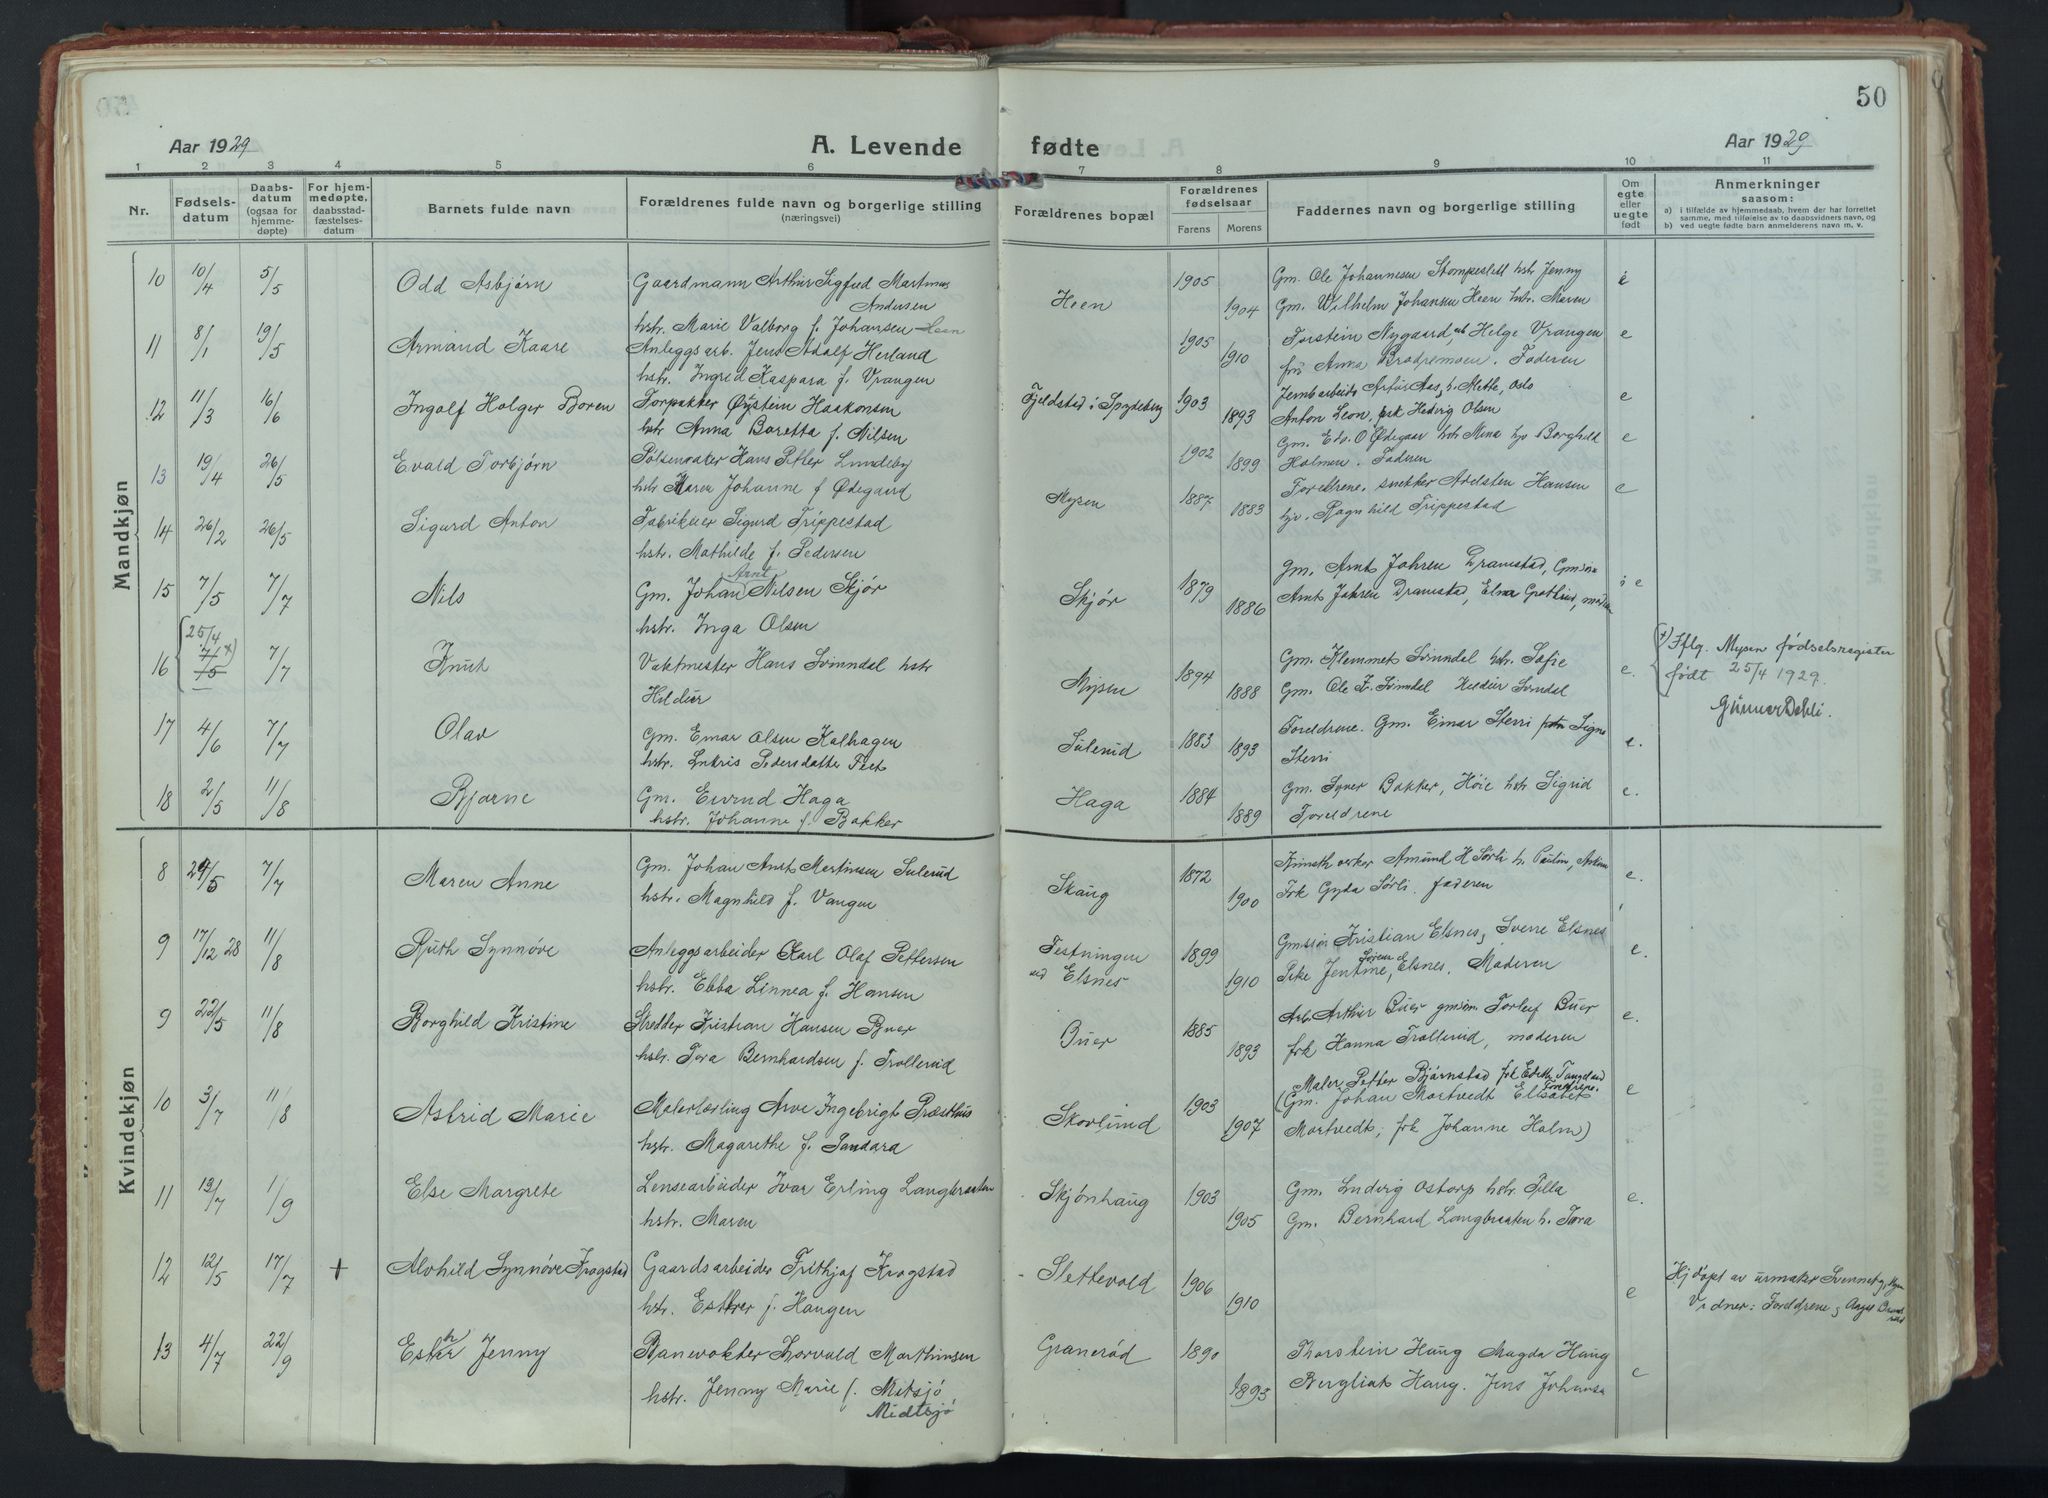 50
Aar 1929
A. Levende fødte
Aar 1929
1 2 3 4 5 6 7 8 9 10 11
Nr.
Fødsels-
datum
Daabs-
datum
(ogsaa for
hjemme-
døpte)
For hjem-
medøpte,
daabsstad-
fæstelses-
datum
Barnets fulde navn
Forældrenes fulde navn og borgerlige stilling
(næringsvei)
Forældrenes bopæl
Forældrenes
fødselsaar
Farens Morens
Faddernes navn og borgerlige stilling
Om
egte
eller
uegte
født
Anmerkninger
saasom:
a) i tilfælde av hjemmedaab, hvem der har forrettet
samme, med tilføielse av to daabsvidners navn, og
b) ved uegte fødte barn anmelderens navn m. v.
Mandkjøn
10 10/4 5/5 Odd Asbjørn Gaardmann Arthur Sigfred Martinus
Andersen
hstr. Marie Valborg f. Johansen Heen
Heen 1905 1904 Gm. Ole Johannesen hstr. Jenny e
Gm. Wilhelm Johansen Heen hstr. Maren
11 8/1 19/5 Armand Kaare Anleggsarb. Jens Adolf Herland
hstr. Ingrid Kaspara f. Vrangen
1905 1910 Torstein Nygaard, Helge Vrangen e
frø Anna Brødremoen. Faderen
12 11/3 16/6 Ingolf Holger Boren Torpakker Øystein Haakonsen
hstr Anna Boretta f. Nilsen
Fjeldstad i Spydeberg 1903 1893 Jernbarbeider Aas, h. Alette, Oslo e
Anton Leon, frk Hedvig Olsen
13 19/4 26/5 Evald Torbjørn Pølsemaker Hans Petter Lundeby
hstr Maren Johanne f Ødegaard
1902 1899 Gm. Edv. O Ødegaar hstr Mina hjv Borghild e
Holmen. Faderen
14 26/2 26/5 Sigurd Anton Fabrikeier Sigurd Trippestad
hstr. Mathilde f. Pedersen
Mysen 1887 1883 Foreldrene. snekker Adelsten Hansen e
hjv. Ragnhild Trippestad
15 7/5 7/7 Nils Gm. Johan Arnt Nilsen Skjør
hstr. Inga Olsen
Skjør 1879 1886 Gm. Arnt Johren Dramstad, Gmsøn e
Arnt Johren Dramstad, Elna moderen
16 25/4 7/5 x) 7/7 Knut Vaktmester Hans Svinndal hstr
Hildur
Mysen 1894 1888 Gm. Klemmet Svinndal hstr. Sofie e.
Gm. Ole F. Svinndal Hildur Svindal
(x) Iflg. Mysen fødselsregister
født 25/4 1929.
Gunnar Dahli.
17 4/6 7/7 Olav Gm. Einar Olsen Kalhagen
hstr. Lukris Pedersdatter Tveit
Sulerud 1883 1893 Foreldrene. Gm. Einar Sterri Signe e.
Sterri
18 2/5 11/8 Bjarne Gm. Eivind Haga
hstr. Johanne f. Bakker
Haga 1884 1889 Gm. Syver Bakker, Høie hstr Sigrid e.
Foreldrene
Kvindekjøn
8 24/5 7/7 Maren Anne Gm. Johan Arnt Martinsen Sulerud
hstr. Magnhild f. Vangen
Skaug 1872 1900 Amund H Sørli h. Paulin, Askim e.
Frk Gyda Sørli. faderen
9 17/12 28 11/8 Ruth Synnøve Anleggsarbeider Karl Olaf Pettersen
hstr. Ebba Linnea f. Hansen
Festningen
ved Elsnes
1899 1910 Gmsøn Kristian Elsnes, Sverre Elsnes e.
Pike Jentine, Elsnes. Moderen
9 22/5 11/8 Borghild Kristine Skredder Kristian Hansen Buer
hstr. Tora Bernhardsen f. Trollerud
Buer 1885 1893 Arb. Arthur Buer gmsøn. Torleif Buer e.
frk Hanna Trollerud, moderen
10 3/7 11/8 Astrid Marie Malerlærling Arve Ingebrigt Præsthus
hstr. Magarethe f. Sandara
Skovlund 1903 1907 Maler Petter Bjørnstad frk Edith Tangstad e
(Gm. Johan Mortvedt Elisabet
Mortvedt; frk Johanne Holm)
11 13/7 1/9 Else Margrete Lensearbeider Ivar Erling Langbraaten
hstr. Maren
Skjønhaug 1903 1905 Gm. Ludvig Ostorp hstr. Tilla e.
Gm. Bernhard Langbraaten h. Tora
12 12/5 17/7 + Alvhild Synnøve Krogstad Gaardsarbeider Frithjof Krogstad
hstr. Esther f. Haugen
Slettevold 1906 1910 e
Hjdøpt av urmaker Svenneby, Mysen
Vidner: Foreldrene, Aagot
13 4/7 22/9 Esther Jenny Banevokter Thorvald Marthinsen
hstr. Jenny Marie f. Mitsjø
Midtsjø
Granerød 1890 1893 Thorstein Haug Magda Haug e
Bergliat Haug. Jens Johansen